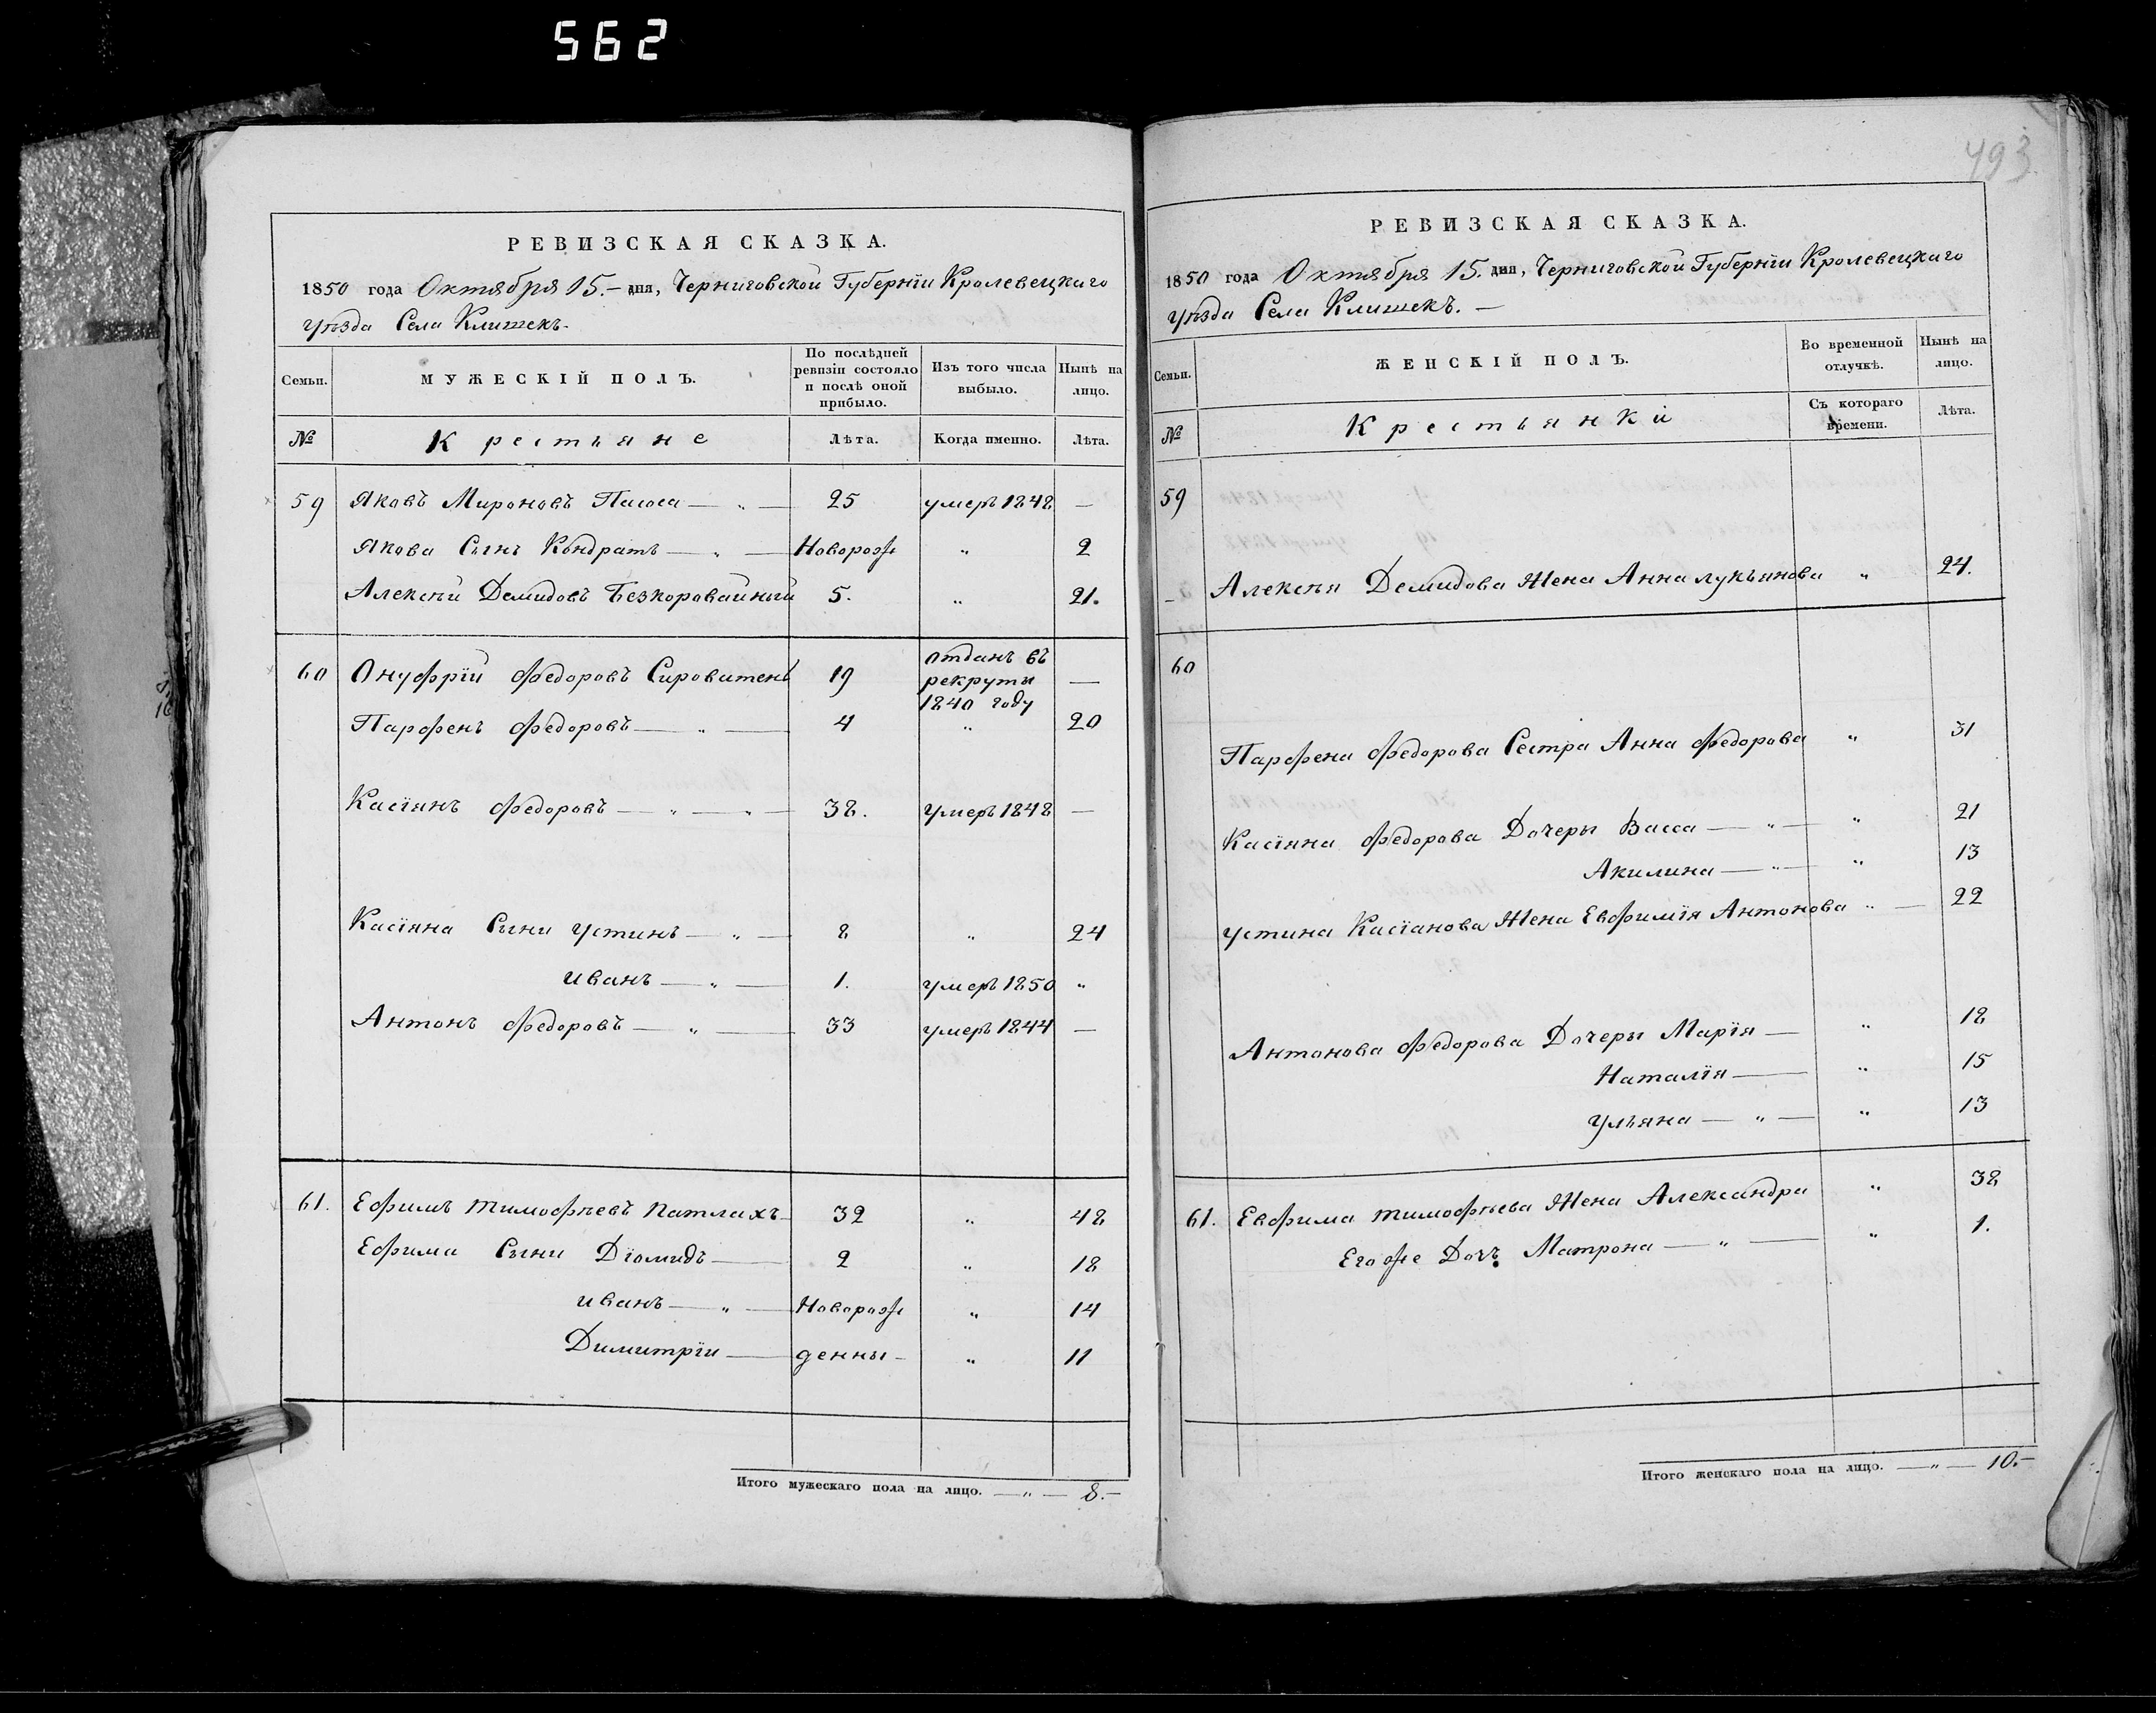 562
РЕВИЗСКАЯ СКАЗКА.
1850 года Октября 15.– дня, Черниговской Губерніи Кролевецкаго
уѣзда Села Клишекъ.
Семьи. МУЖЕСКІЙ ПОЛЪ. По послѣдней ревизіи состояло и послѣ оной прибыло. Изъ того числа выбыло. Нынѣ на лицо.
№ Крестьяне Лѣта. Когда именно. Лѣта.
59 Яковъ Мироновъ — „ — 25 умеръ 1848 —
Якова Сынъ Кондратъ — „ — Новорож „ 2
Алексѣй Демидовъ Безкоровайный 5. „ 21.
60 Онуфрій Федоровъ Сировитень 19 отданъ въ рекруты 1840 году —
Парфенъ Федоровъ — „ — 4 „ 20
Касіянъ Федоровъ — „ — „ — 38. умеръ 1848 —
Касіяна Сыни Устинъ — „ — 8 „ 24
Иванъ — „ — 1. умеръ 1850 „
Антонъ Федоровъ — „ — 33 умеръ 1844 —
61. Ефимъ Тимофѣевъ Патлахъ 32 „ 48
Ефима Сыни Діомидъ — 2 „ 18
Иванъ — „ — Новорож „ 14
Димитрій — денны – „ 11
Итого мужескаго пола на лицо. — „ — 8.–
493
РЕВИЗСКАЯ СКАЗКА.
1850 года Октября 15. дня, Черниговской Губерніи Кролевецкаго
уѣзда Села Клишекъ. —
Семьи. ЖЕНСКІЙ ПОЛЪ. Во временной отлучкѣ. Нынѣ на лицо.
№ Крестьянки Съ котораго времени. Лѣта.
59
Алексѣя Демидова Жена Анна Лукьянова „ 24.
60
Парфена Федорова Сестра Анна Федорова „ 31
Касіяна Федорова Дочеры Васса — „ — „ 21
Акилина — „ — „ 13
Устина Касіанова Жена Евфимія Антонова „ — 22
Антонова Федорова Дочеры Марія — „ 18
Наталія — „ 15
Ульяна — „ — „ 13
61. Евфима Тимофѣева Жена Александра „ 38
Его же Дочъ Матрона — „ — „ 1.
Итого женскаго пола на лицо. — „ — 10.–